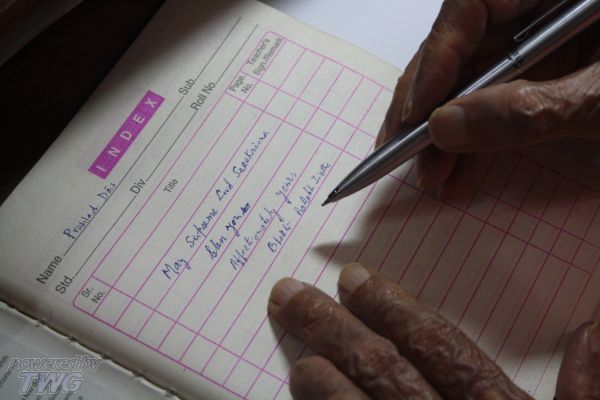 INDEX
Name Prahlad Das
Std. Div. Sub.
Roll No.
Sr. No. Title Page No. Teacher's Sign./Remark
May Supreme Lord
Bless you
Affectionately yours
Bhakti Ballabh
powered by
TWG